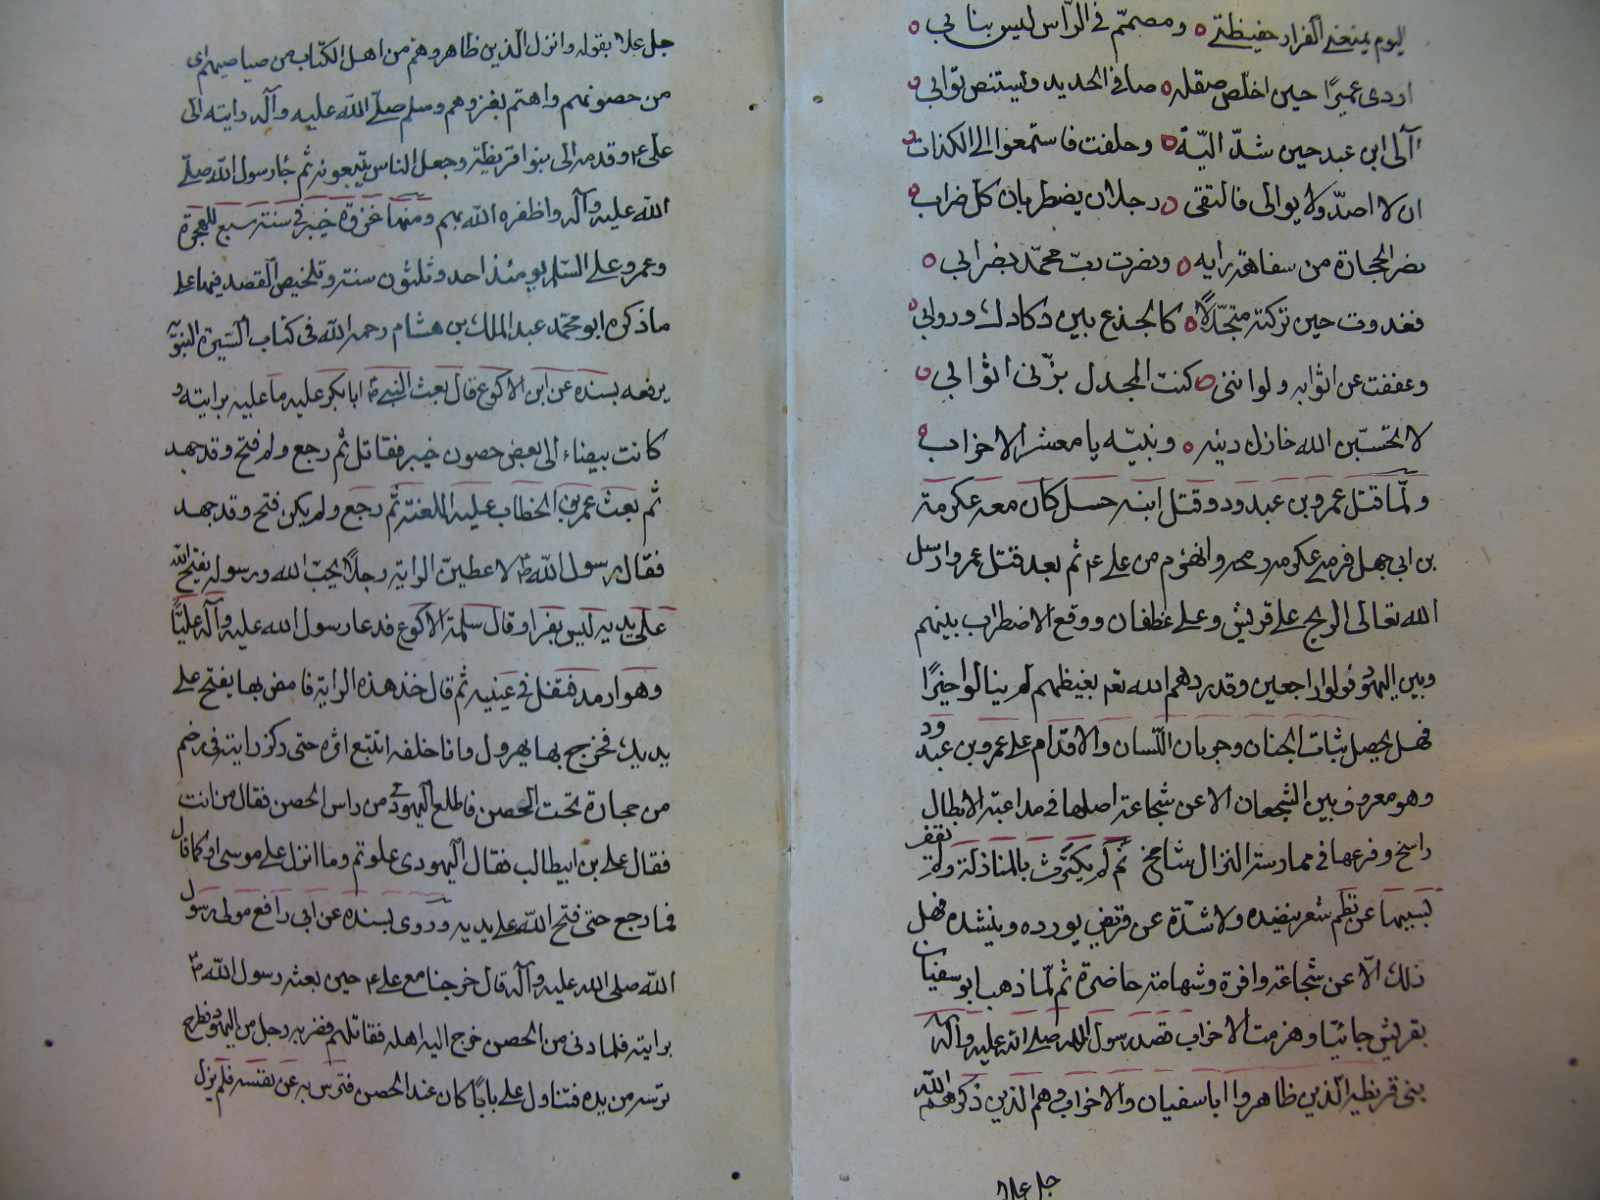 اليوم يمنعني الفرار حفيظتي ٥ ومصمم في الراس ليس بنابي ٥
اردى عميرًا حين اخلص صقله ٥ صافى الحديد ويستنص ثوابي ٥
آلى ابن عبد حين شدّ اليّة ٥ وحلفت فاستمعوا الى الكذاب
ان لا اصدّ ولا يوالى فالتقى ٥ رجلان يضطربان كلّ ضراب ٥
نصر الحجارة من سفاهة رايه ٥ ونصرت ربّ محمّد بضرابى ٥
فغدوت حين تركته متجدّلًا ٥ كالجذع بين دكادك وروابي ٥
وعففت عن اثوابه ولو اننى ٥ كنت المجدل بزّنى اثوابي ٥
لا تحسبّن الله خاذل دينه ٥ ونبيّه يا معشر الاحزاب ٥
ولمّا قتل عمرو بن عبدود وقتل ابنه حسل كان معه عكرمة
بن ابى جهل فرمى عكرمه رمحه وانهزم من على ع ثم بعد قتل عمرو ارسل
الله تعالى الريح على قريش وعلى غطفان ووقع الاضطراب بينهم
وبين اليهود فولوا راجعين وقد ردهم الله تعم بغيظهم لم ينالوا خيرًا
فهل يحصل ثبات الجنان وجريان اللّسان والاقدام على عمرو بن عبدود
وهو معروف بين الشجعان الا عن شجاعة اصلها فى مداعبة الابطال
راسخ وفرعها فى ممارسة النزال شامخ ثم لم يكترث بالمنازلة ولم يقف
بسببها عن نظم شعر ينضده ولا شدّة عن قريض يورده وينشده فهل
ذلك الّا عن شجاعة وافرة وشهامة حاضرة ثم لمّا ذهب ابو سفيان
بقريش خائبًا وهزمت الاحزاب قصد رسول الله صلى الله عليه وآله
بنى قريظة الّذين ظاهروا ابا سفيان والاحزاب وهم الذين ذكرهم الله
جل علا
جل علا بقوله وانزل الّذين ظاهروهم من اهل الكتاب من صياصيهم اى
من حصونهم واهتم بغزوهم وسلم صلّى الله عليه وآله رايته الى
على ع وقدمه الى بنو اقريظة وجعل الناس يتبعونه ثم جاء رسول الله صلّى
الله عليه وآله واظفره الله بهم ومنها غزوة خيبر فى سنة سبع للهجرة
وعمرو على السّلم يومئذ احد وثلثون سنة وتلخيص القصد فيها على
ما ذكره ابو محمّد عبد الملك بن هشام رحمه الله فى كتاب السّيرة النبويّة
يرفعه بسنده عن ابن الاكوع قال بعث النبي ص ابا بكر عليه ما عليه برايته و
كانت بيضاء الى بعض حصون خيبر فقاتل ثم رجع ولم فتح وقد جهد
ثم بعث عمر بن الخطاب عليه اللعنة ثم رجع ولم يكن فتح وقد جهد
فقال رسول الله ص لاعطينّ الراية رجلًا يحبّ الله ورسوله يفتح الله
على يديه ليس بفرار وقال سلمة الاكوع فدعا رسول الله عليه وآله عليًّا
وهو ارمد فتفل فى عينيه ثم قال خذ هذه الراية فامض بها يفتح على
يديك فخرج بها يهرول وانا خلفه اتتبع اثره حتى ركز رايته فى رضم
من حجارة تحت الحصن فاطلع اليهودى من راس الحصن فقال من انت
فقال على بن ابيطالب فقال اليهودى علوتم وما انزل على موسى او كما قال
فما رجع حتى فتح اللّه على يديه وروى بسنده عن ابى رافع مولى رسول
اللّه صلى الله عليه وآله قال خرجنا مع على ع حين بعثه رسول الله ص
برايته فلما دنى من الحصن خرج اليه اهله فقاتلهم فضربه رجل من اليهود فطرح
ترسه من يده فتناول على بابًا كان عند الحصن فترس به عن نفسه فلم يزل